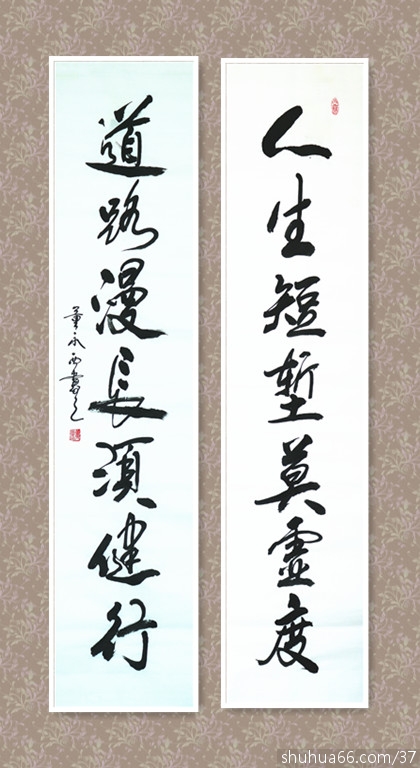 人生短暫莫虚度
道路漫長須健行
董永西書
shuhua66.com/37